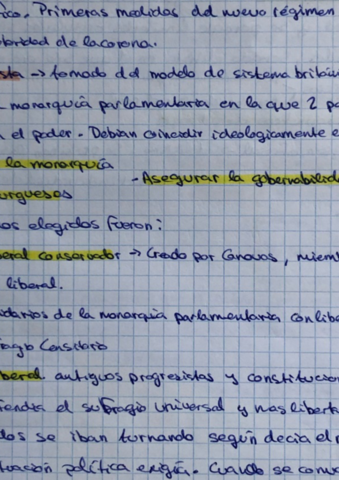 ico. Primeras medidas del nuevo régimen
oridad de la corona.
sta → tomado del modelo de sistema britán
monarquía parlamentaria en la que 2 pa
n el poder - Debían coincidir ideologicamente e
la monarquía
- Asegurar la gobernabilida
urgueses
os elegidos fueron:
eral conservador → Creado por Canovas, miem
liberal.
idarios de la monarquía parlamentaria con libe
ragio Censitario
beral antiguos progresistas y constitucion
iendia el sufragio universal y mas liberta
dos se iban turnando según decia el r
tuación política exigía. Cuando se conv